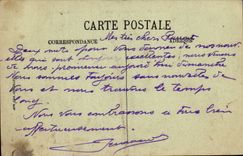 CARTE POSTALE
CORRESPONDANCE
Mes très chers Parents
Deux mots pour vous donner de nos nouvelles
qui sont toujours excellentes, nous venons
de nous promener aujourd'hui dimanche
Nous sommes toujours sans nouvelles de
vous et nous trouvons le temps
long
Nous vous embrassons tous bien
affectueusement